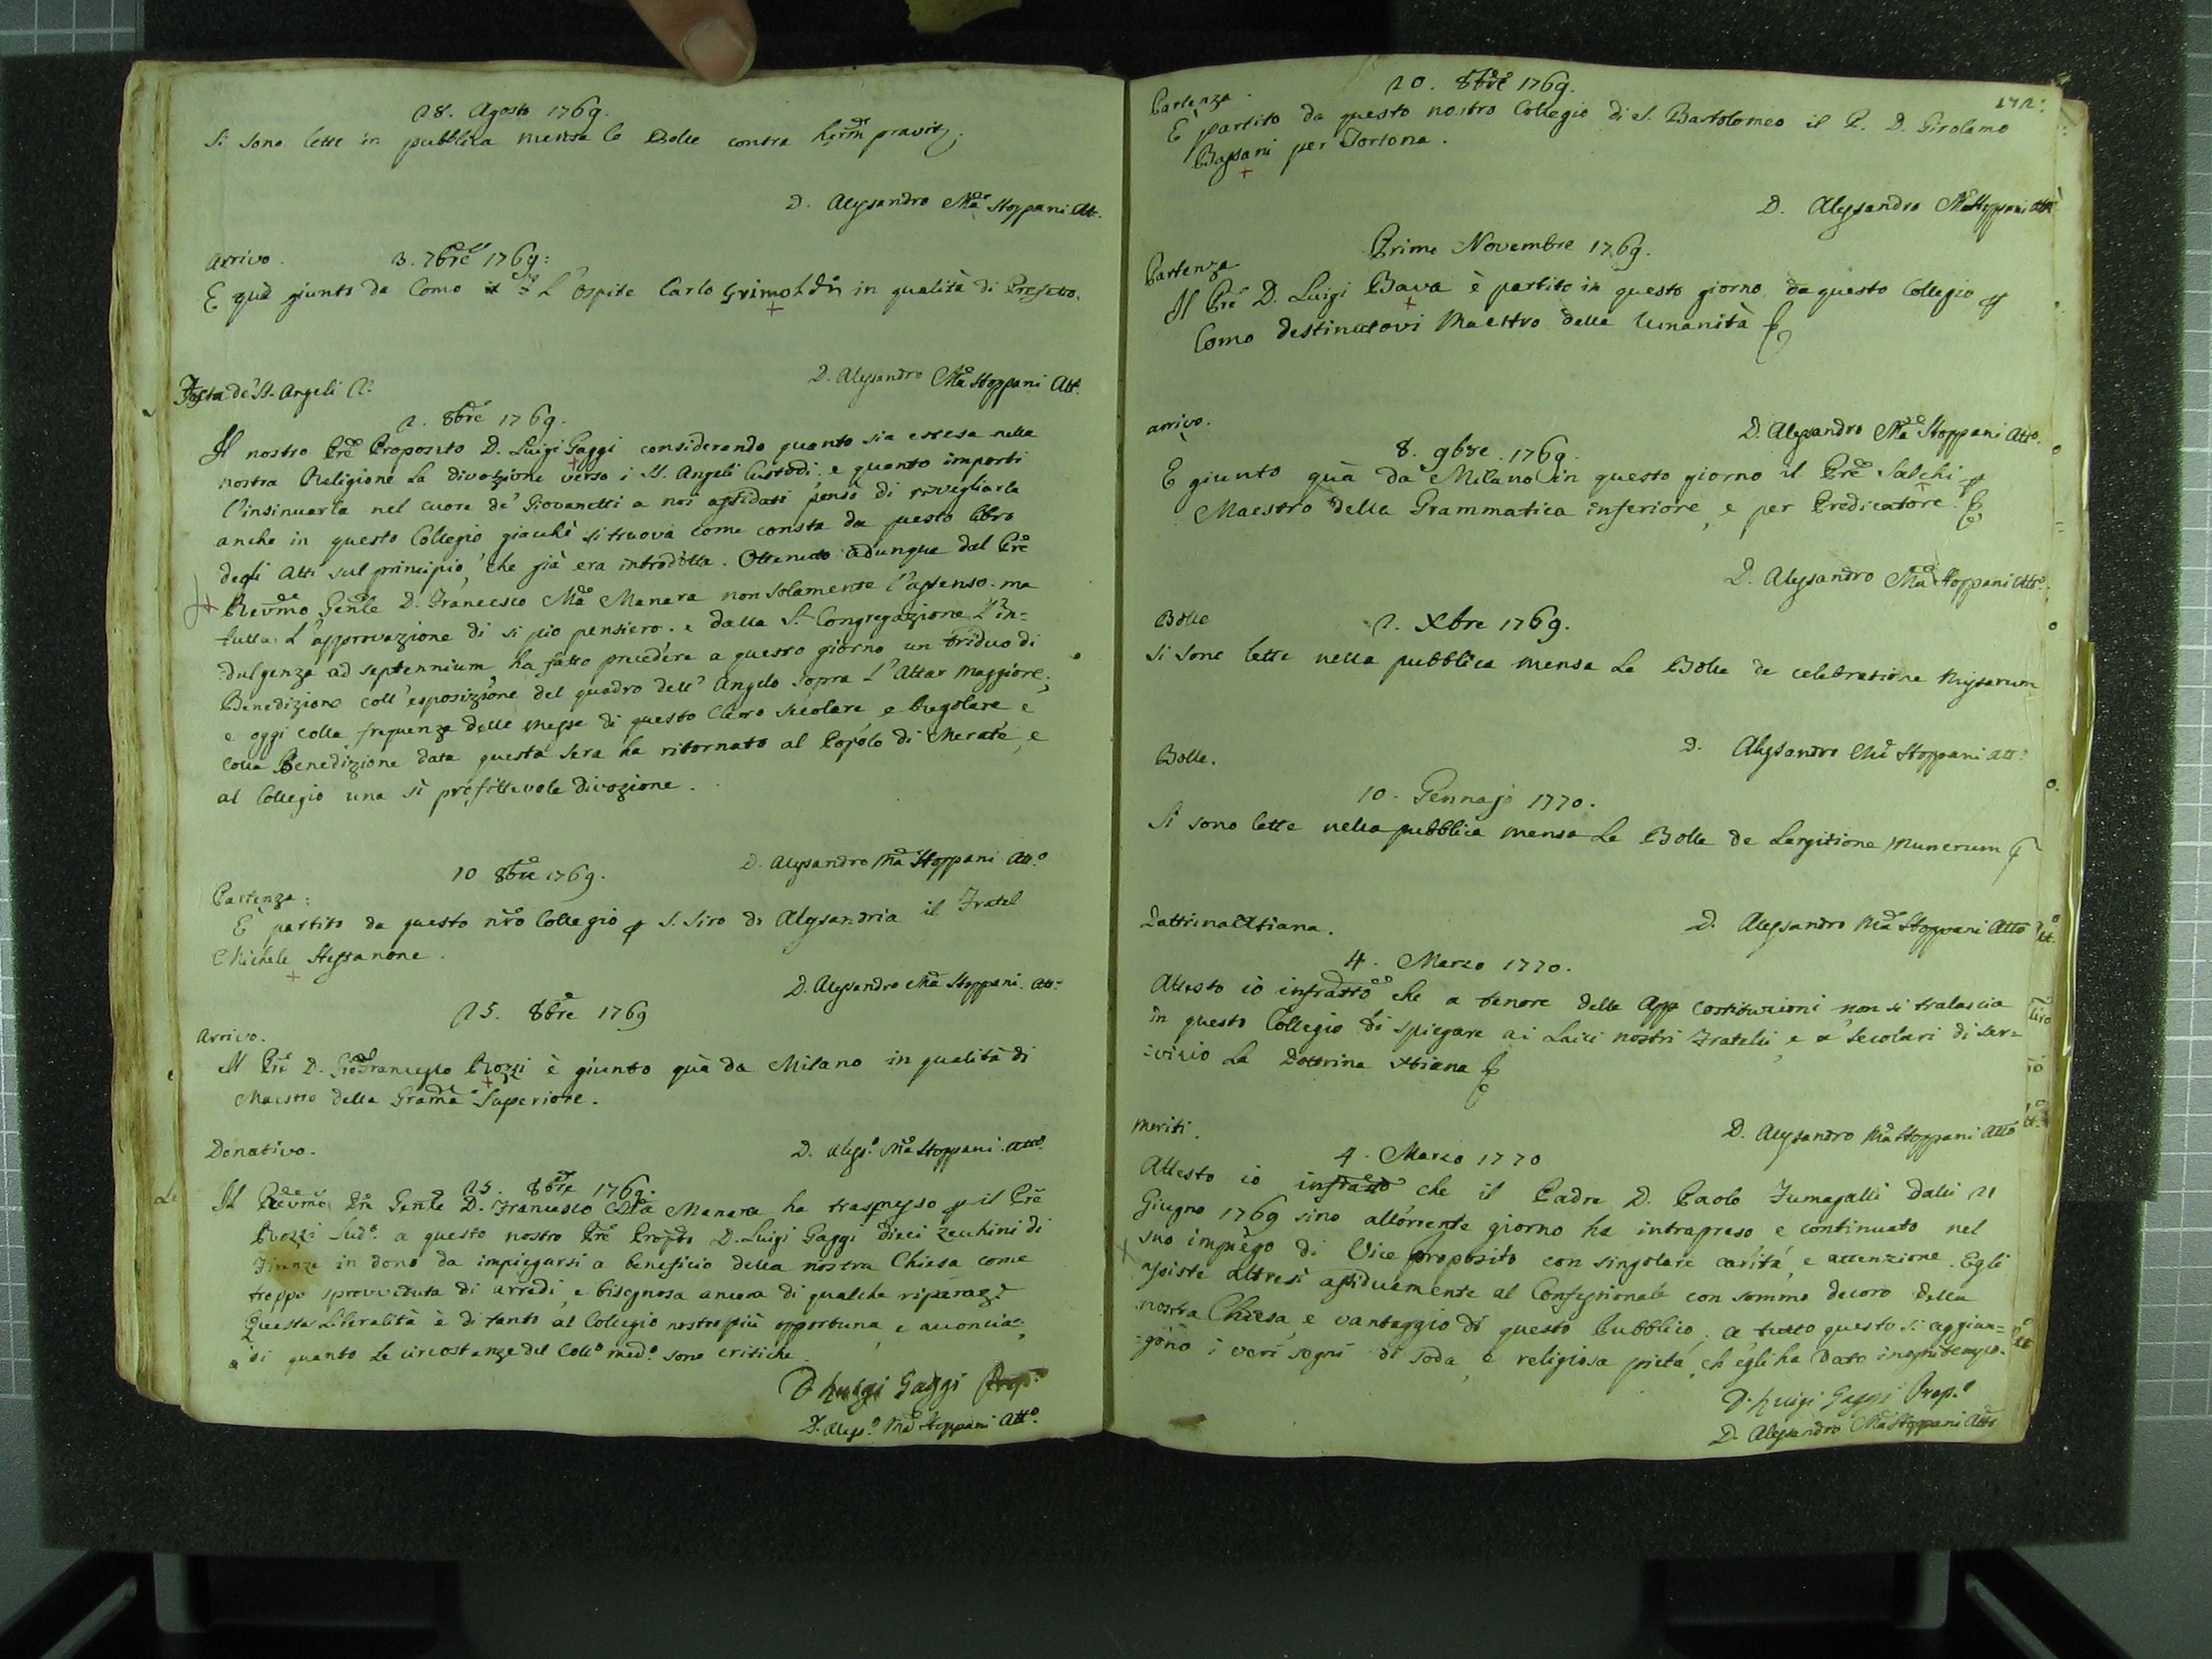 28. Agosto 1769.
Si sono lette in pubblica mensa le Bolle contra
D. Alessandro Mã Stoppani Att.
Arrivo.
3. 7bre 1769:
E quà giunto da Como L'ospite Carlo Grimoldi in qualità di Prefetto.
D. Alessandro Mã Stoppani Att.
Festa de' SS. Angeli C.
2. 8bre 1769.
Il nostro Prē Proposito D. Luigi Gaggi considerando quanto sia estesa nella
nostra Religione La divozione verso i SS. Angeli Custodi. e quanto importi
l'insinuarla nel cuore de' Giovanetti a noi affidati pensò di risvegliarla
anche in questo Collegio giacchè si truova come consta da questo libro
degli Atti sul principio, che già era introdotta. Ottenuto adunque dal Prē
Revmo Genle D. Francesco Mã Manara non solamente l'assenso. ma
L'approvazione di si pio pensiero. e dalla S. Congregazione L'in=
:dulgenza ad septennium, ha fatto precedere a questo giorno un triduo di
Benedizione coll'esposizione del quadro dell'Angelo sopra L'Altar Maggiore;
e oggi colla frequenza delle messe di questo Clero Secolare e Regolare e
colla Benedizione data questa sera ha ritornato al Popolo di Merate, e
al Collegio una sì profittevole divozione.
D. Alessandro Mã Stoppani Att.o
10 8bre 1769.
Partenza:
E' partito da questo nrõ Collegio p S. Siro di Alessandria il Fratel
Michele Stessanone.
D. Alessandro Mã Stoppani. Att.
25. 8bre 1769
Arrivo.
Il Prē D. Gio Francesco Rozzi è giunto quà da Milano in qualità di
Maestro della Grama Superiore.
D. Aless.o Mã Stoppani. Atto.
Donativo.
25. 8bre 1769.
Il Revmo Prē Genle D. Francesco Mã Manara ha trasmesso p il Prē
Rozzi sud.o a questo nostro Prē Propto D. Luigi Gaggi dieci zecchini di
Firenze in dono da impiegarsi a beneficio della nostra Chiesa come
troppo sprovveduta di arredi, e bisognosa ancora di qualche riparaz.
Questa Liberalità è di tanto al Collegio nostro più opportuna, e acconcia
di quanto Le circostanze del Coll.o med.o sono critiche.
D Luigi Gaggi Prop.o
D. Aless.o Mã Stoppani Att.o
Partenza.
20. 8bre 1769.
E' partito da questo nostro Collegio di S. Bartolomeo il P. D. Girolamo
Bassani per Tortona.
D. Alessandro Mã Stoppani Att
Primo Novembre 1769.
Partenza
Il Prē D. Luigi Bava è partito in questo giorno da questo Collegio p
Como destinatovi Maestro della Umanità
D. Alessandro Mã Stoppani Atto.
arrivo.
8. 9bre. 1769.
E' giunto quà da Milano in questo giorno il Prē Salchi p
Maestro della Grammatica inferiore, e per Predicatore.
D. Alessandro Mã Stoppani Atto.
Bolle
2. Xbre 1769.
Si sono lette nella pubblica mensa Le Bolle de celebratione Missarum
D. Alessandro Mã Stoppani Att.
Bolle.
10. Gennajo 1770.
Si sono lette nella pubblica mensa Le Bolle de Largitione munerum
D. Alessandro Mã Stoppani Atto
Dottrina Xtiana.
4. Marzo 1770.
Attesto io infratto che a tenore delle App Costituzioni non si tralascia
in questo Collegio di spiegare ai Laici nostri Fratelli, e a' secolari di ser=
:vizio La Dottrina Xtiana
D. Alessandro Mã Stoppani Atto
meriti.
4. Marzo 1770
Attesto io infratto che il Padre D. Paolo Fumagalli dalli 21
Giugno 1769 sino all'orrente giorno ha intrapreso e continuato nel
suo impiego di Vice proposito con singolare carità, e attenzione. Egli
assiste altresì assiduamente al Confessionale con sommo decoro della
nostra Chiesa, e vantaggio di questo Pubblico. a tutto questo si aggiun=
:gono i veri segni di soda, e religiosa pietà, ch'egli ha dato in ogni tempo.
D. Luigi Gaggi Prop.o
D. Alessandro Mã Stoppani Atto